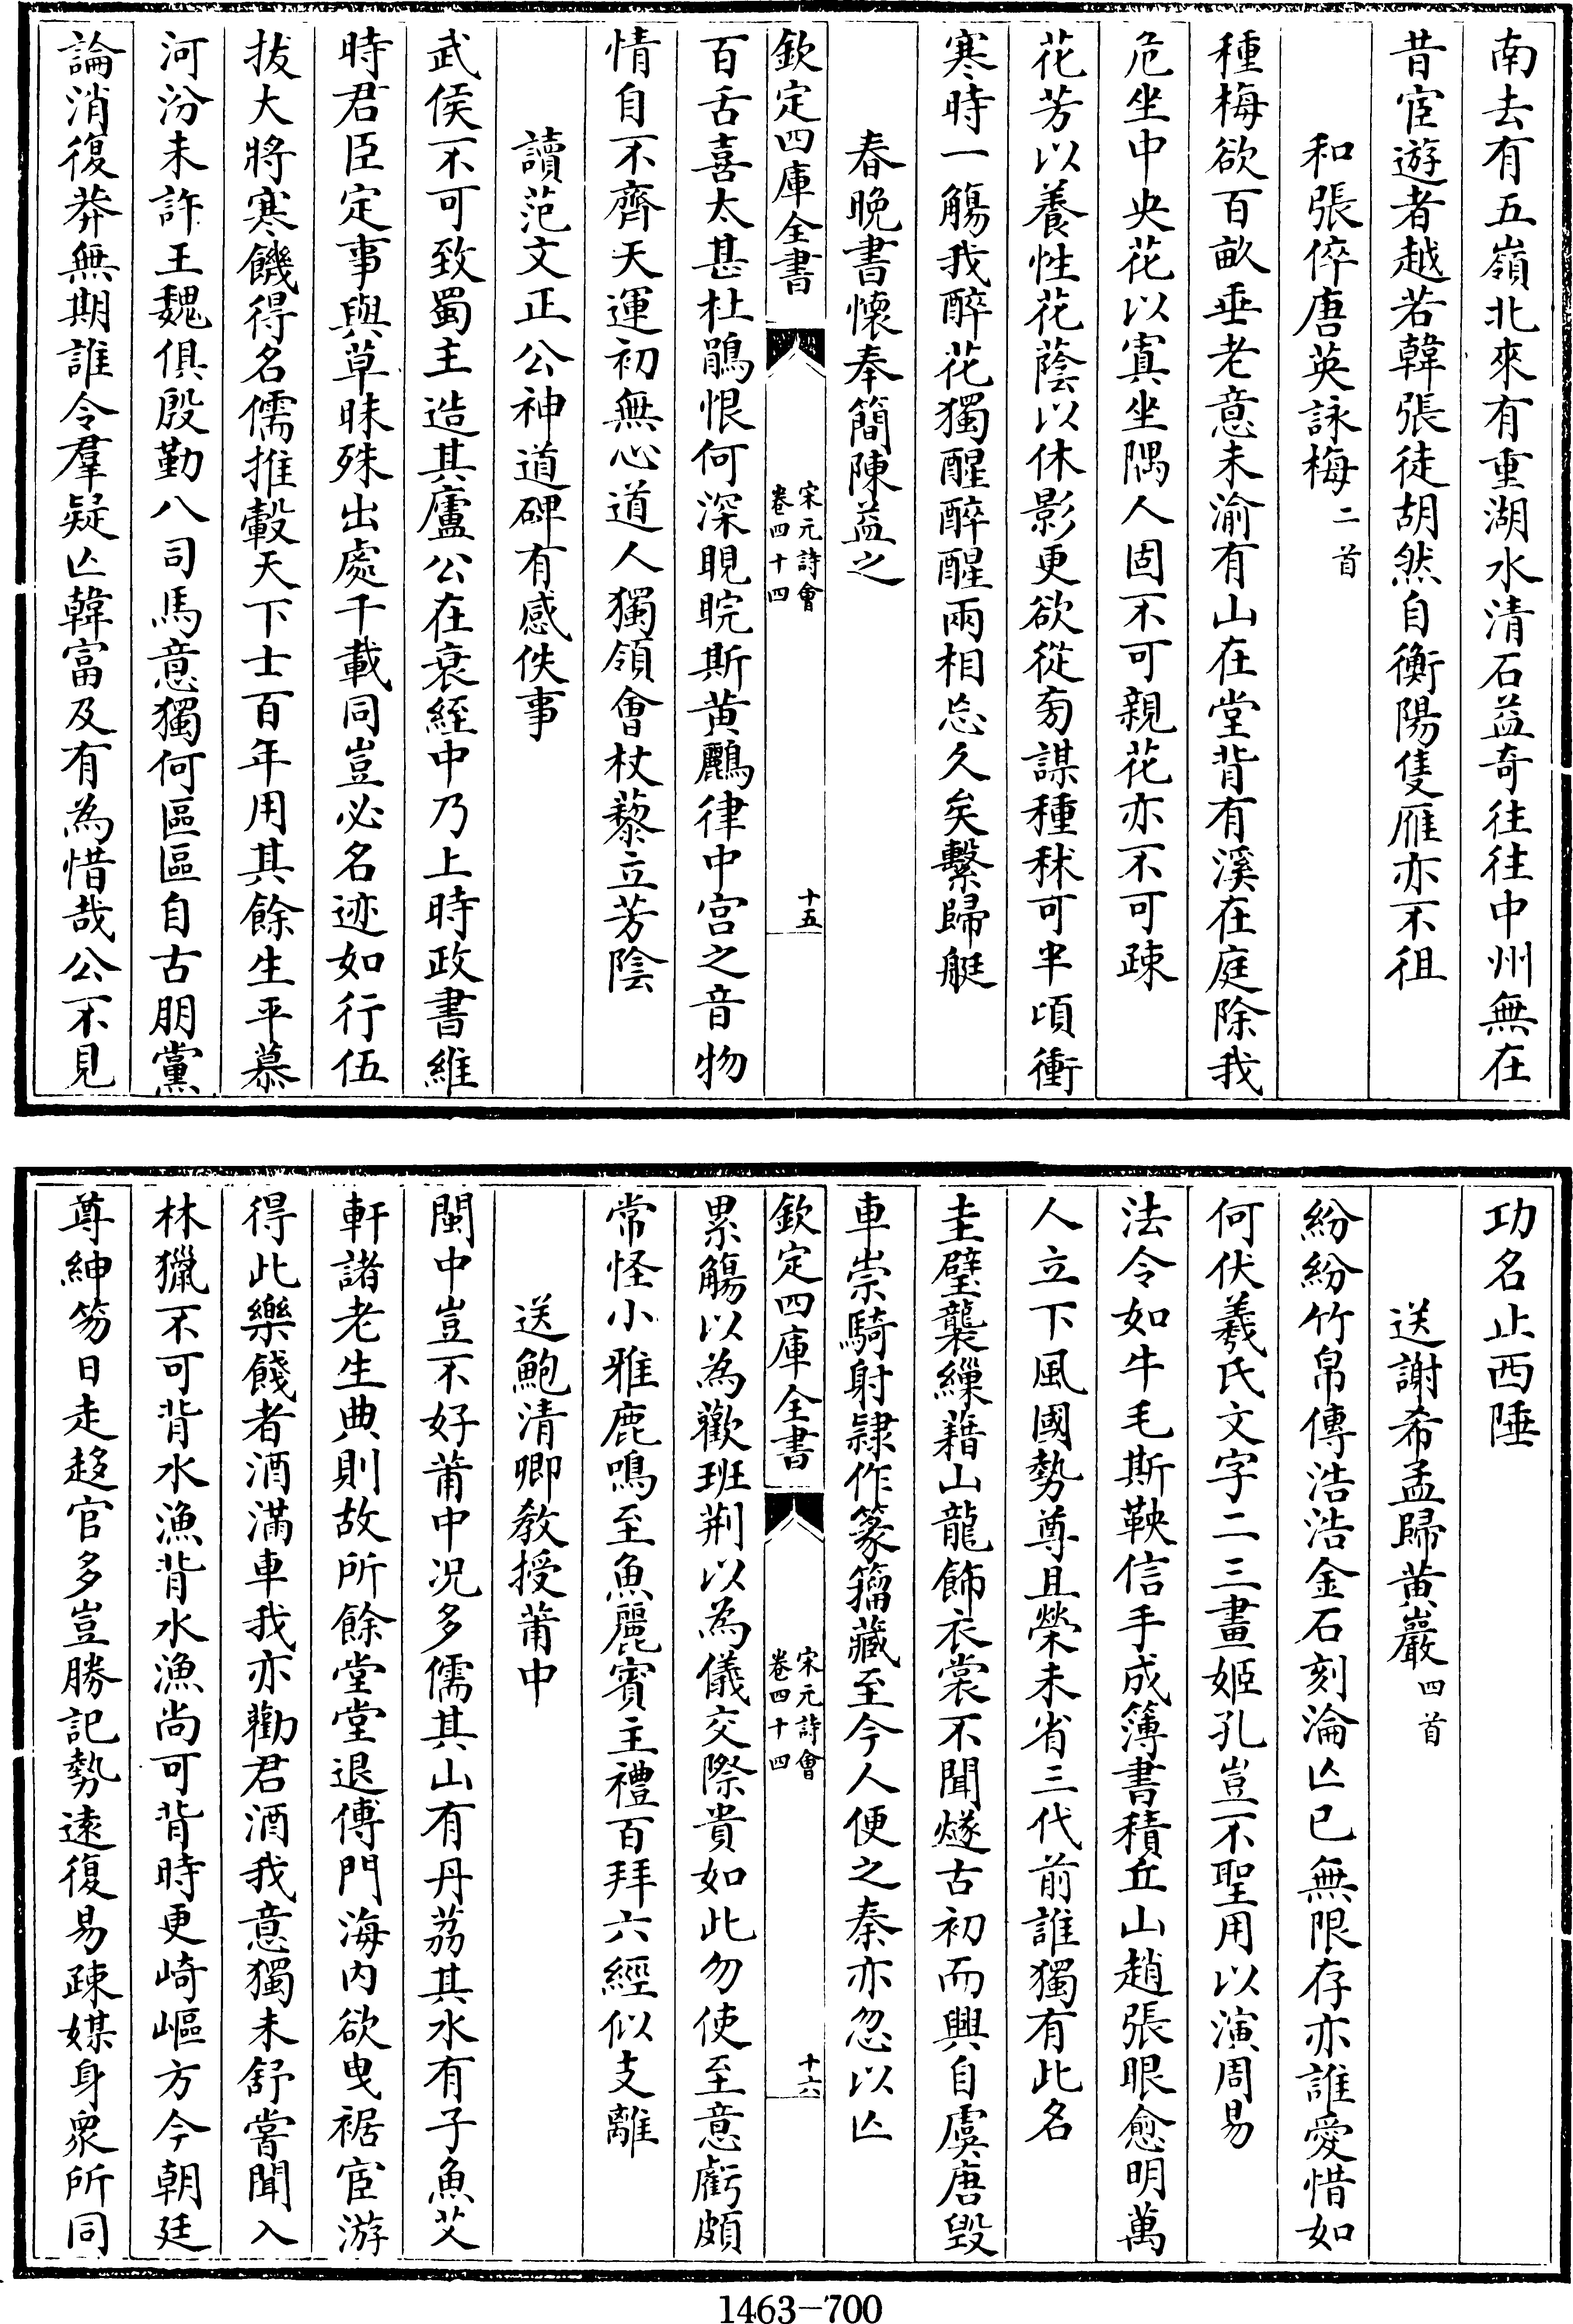 南去有五嶺北來有重湖水清石益奇往往中州無在
昔宦遊者越若韓張徒胡然自衡陽隻雁亦不徂
和張倅唐英詠梅二首
種梅欲百畝垂老意未渝有山在堂背有溪在庭除我
危坐中央花以寘坐隅人固不可親花亦不可疎
花芳以養性花蔭以休影更欲從旁謀種秫可半頃衝
寒時一觴我醉花獨醒醉醒兩相忘久矣繫歸艇
春晚書懷奉簡陳益之
欽定四庫全書
宋元詩會
卷四十四
十五
百舌喜太甚杜鵑恨何深睍睆斯黄鸝律中宫之音物
情自不齊天運初無心道人獨領會杖藜立芳陰
讀范文正公神道碑有感佚事
武侯不可致蜀主造其廬公在衰絰中乃上時政書維
時君臣定事與草昧殊出處千載同豈必名迹如行伍
拔大將寒饑得名儒推轂天下士百年用其餘生平慕
河汾未許王魏俱殷勤八司馬意獨何區區自古朋黨
論消復莽無期誰令羣疑亾韓富及有為惜哉公不見
功名止西陲
送謝希孟歸黄巖四首
紛紛竹帛傳浩浩金石刻淪亾已無限存亦誰愛惜如
何伏羲氏文字二三畫姬孔豈不聖用以演周易
法令如牛毛斯鞅信手成簿書積丘山趙張眼愈明萬
人立下風國勢尊且榮未省三代前誰獨有此名
圭璧襲繅藉山龍飾衣裳不聞燧古初而興自虞唐毁
車崇騎射隷作篆籀藏至今人便之秦亦忽以亾
欽定四庫全書
宋元詩會
卷四十四
十六
累觴以為歡班荆以為儀交際貴如此勿使至意虧頗
常怪小雅鹿鳴至魚麗賓主禮百拜六經似支離
送鮑清卿教授莆中
閩中豈不好莆中况多儒其山有丹荔其水有子魚艾
軒諸老生典則故所餘堂堂退傅門海内欲曳裾宦游
得此樂餞者酒滿車我亦勸君酒我意獨未舒嘗聞入
林獵不可背水漁背水漁尚可背時更崎嶇方今朝廷
尊紳笏日走趍官多豈勝記勢遠復易疎媒身衆所同
1463-700